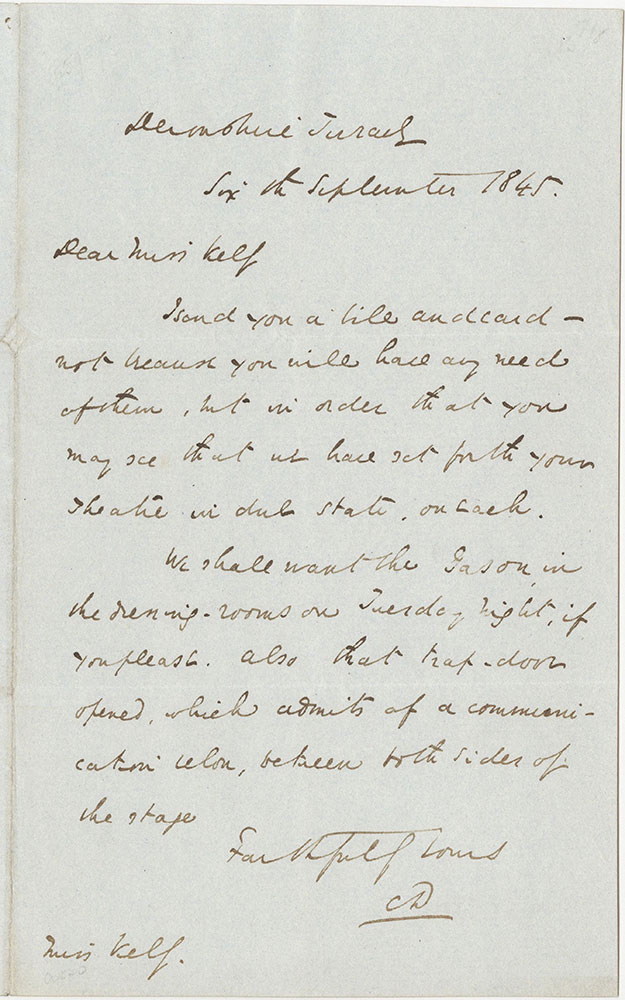 Devonshire Terrace
Sixth September 1845.
Dear Miss Kelly
I send you a bill and card –
not because you will have any need
of them, but in order that you
may see that we have set forth your
Theatre in due state, on each.
We shall want the Gas on, in
the dressing-rooms on Tuesday Night, if
you please. Also that trap-door
opened, which admits of a communi-
cation below, between both sides of
the stage
Faithfully Yours
CD
Miss Kelly.